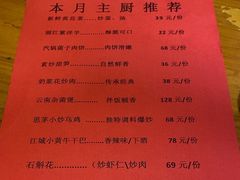 本月主厨推荐
新鲜黄花菜......炒蛋、汤 39 元/份
酥红薯洋芋......酥脆可口 32 元/份
汽锅蛋子肉饼......肉饼滑嫩 68 元/份
素炒甜笋......自然鲜香 36 元/份
奶浆花炒肉......传承经典 38 元/份
云南杂菌煲......拌饭畅香 128 元/份
思茅小炒乌鸡......独特调料爆炒 68 元/份
江城小黄牛干巴......香辣味/下腊 78 元/份
石斛花............(炒虾仁\炒肉 69 元/份